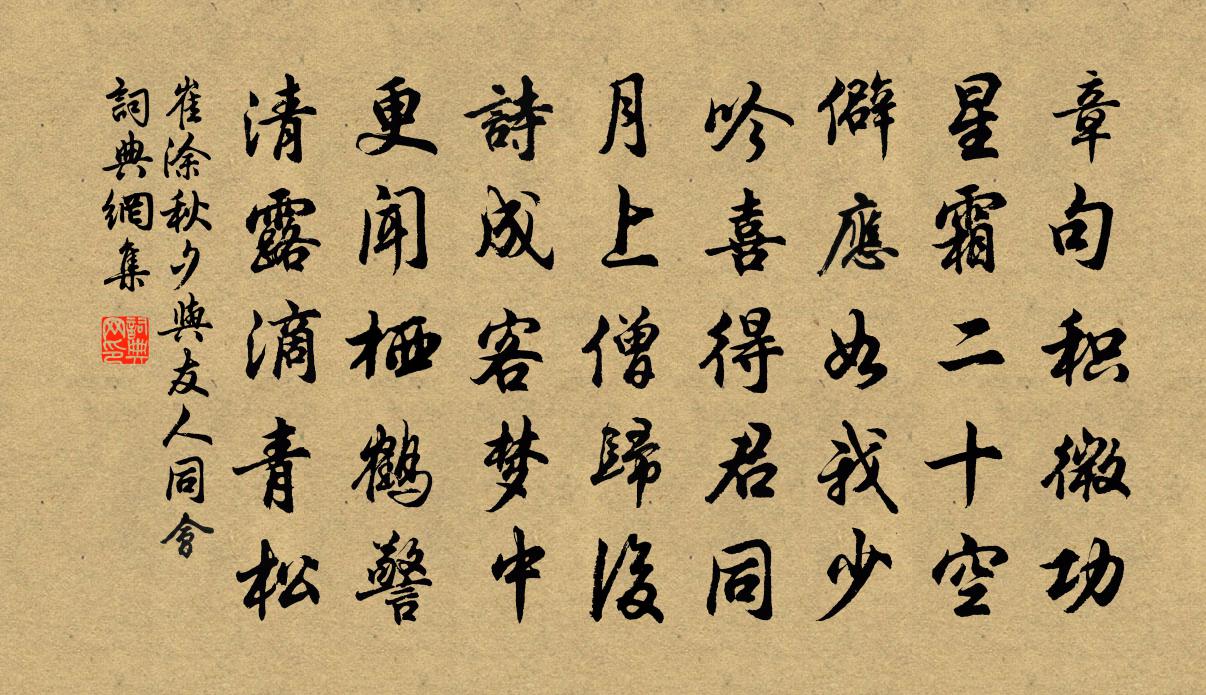 章句积微功
星霜二十空
僻應如我少
吟喜得君同
月上僧歸後
詩成客梦中
更聞栖鶴警
清露滴青松
崔涂秋夕與友人同會
詞典網集
詞典网印